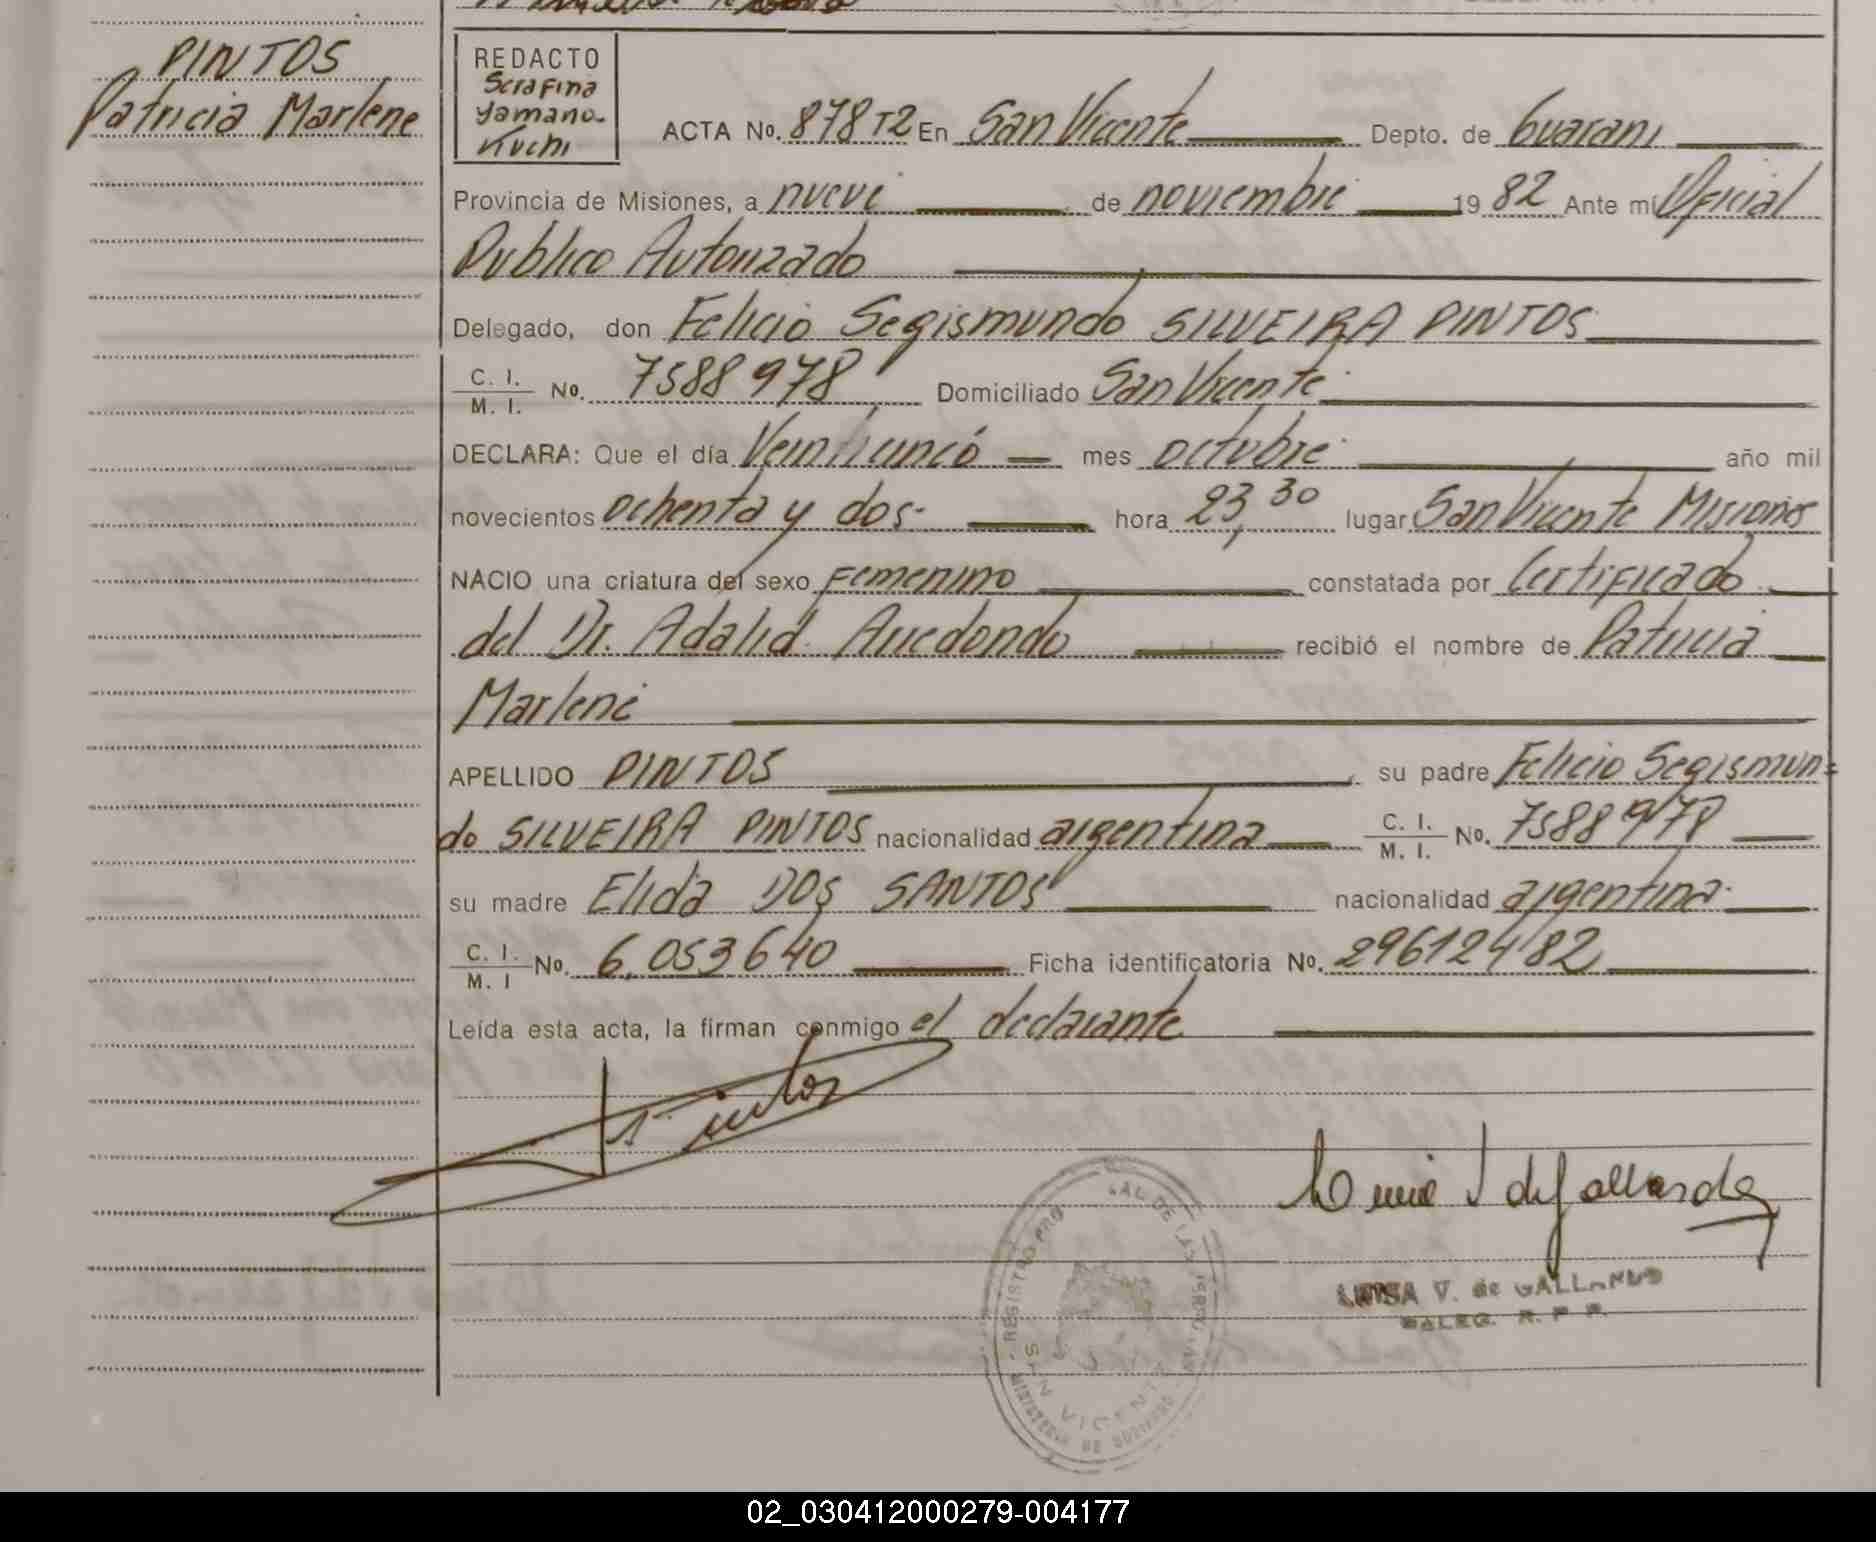 PINTOS
Patricia Marlene
REDACTO
Serafina
Yamano-
Kuchi
ACTA No. 878 T2 En San Vicente Depto. de Guarani
Provincia de Misiones, a nueve de noviembre 1982 Ante mi Oficial
Publico Autorizado
Delegado, don Felicio Segismundo SILVEIRA PINTOS
C. I. / M. I. No. 7588978 Domiciliado San Vicente
DECLARA: Que el día Veinticinco mes octubre año mil
novecientos ochenta y dos hora 23,30 lugar San Vicente Misiones
NACIO una criatura del sexo Femenino constatada por Certificado
del Dr. Adalid Arredondo recibió el nombre de Patricia
Marlene
APELLIDO PINTOS su padre Felicio Segismun=
do SILVEIRA PINTOS nacionalidad argentina C. I. / M. I. No. 7588978
su madre Elida DOS SANTOS nacionalidad argentina
C. I. / M. I No. 6.053640 Ficha identificatoria No. 29612482
Leída esta acta, la firman conmigo el declarante
LUISA V. de GALLARDO
DELEG. R. P. P.
REGISTRO PRO AL DE LAS PERSONAS
SAN VICENTE
MINISTERIO DE GOBIERNO
02_030412000279-004177